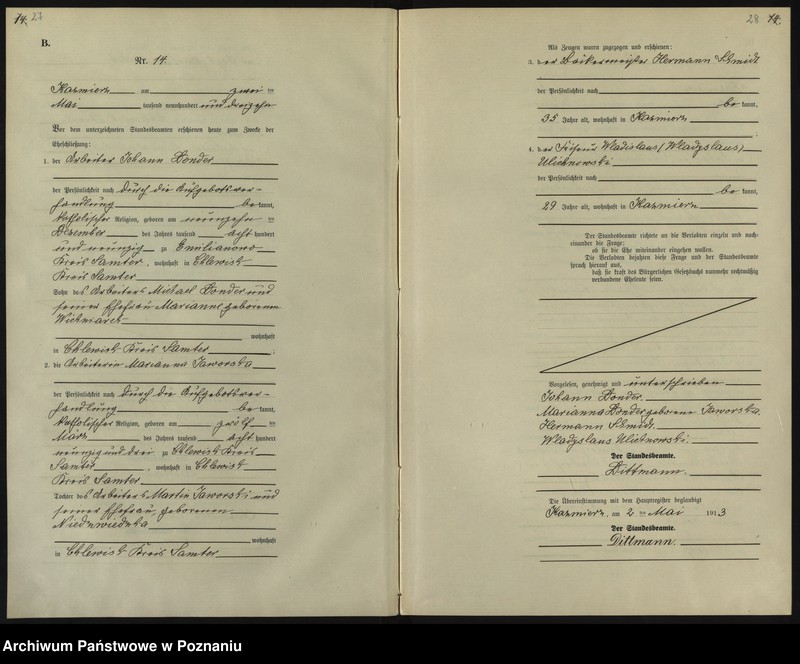 14. 27
B.
Nr. 14.
Kazmierz am zwei ten
Mai tausend neunhundert und dreizehn
Vor dem unterzeichneten Standesbeamten erschienen heute zum Zwecke der
Eheschließung:
1. der Arbeiter Johann Donder
der Persönlichkeit nach durch die Aufgebotsver-
handlung bekannt,
katholischer Religion, geboren am neunzehn ten
Dezember des Jahres tausend acht hundert
und neunzig zu Emilianowo
Kreis Samter, wohnhaft in Chlewisk
Kreis Samter
Sohn des Arbeiters Michael Donder und
seiner Ehefrau Marianne geborenen
wohnhaft
in Chlewisk Kreis Samter;
2. die Arbeiterin Marianna Jaworska
der Persönlichkeit nach durch die Aufgebotsver-
handlung bekannt,
katholischer Religion, geboren am zwölf ten
März des Jahres tausend acht hundert
neunzig und drei zu Chlewisk Kreis
Samter, wohnhaft in Chlewisk
Kreis Samter
Tochter des Arbeiters Martin Jaworski und
seiner Ehefrau, geborenen
Niedzwiedzka
wohnhaft
in Chlewisk Kreis Samter
28 14.
Als Zeugen waren zugezogen und erschienen:
3. der Bäckermeister Hermann Schmidt
der Persönlichkeit nach
bekannt,
35 Jahre alt, wohnhaft in Kazmierz
;
4. der Friseur Wladislaus (Wladyslaus)
Ulichnowski
der Persönlichkeit nach
bekannt,
29 Jahre alt, wohnhaft in Kazmierz
Der Standesbeamte richtete an die Verlobten einzeln und nach-
einander die Frage:
ob sie die Ehe miteinander eingehen wollen.
Die Verlobten bejahten diese Frage und der Standesbeamte
sprach hierauf aus,
daß sie kraft des Bürgerlichen Gesetzbuchs nunmehr rechtmäßig
verbundene Eheleute seien.
Vorgelesen, genehmigt und unterschrieben
Johann Donder.
Marianna Donder geborene Jaworska.
Hermann Schmidt.
Wladyslaus Ulichnowski.
Der Standesbeamte.
Dittmann.
Die Übereinstimmung mit dem Hauptregister beglaubigt
Kazmierz, am 2 ten Mai 1913
Der Standesbeamte.
Dittmann.
Archiwum Państwowe w Poznaniu